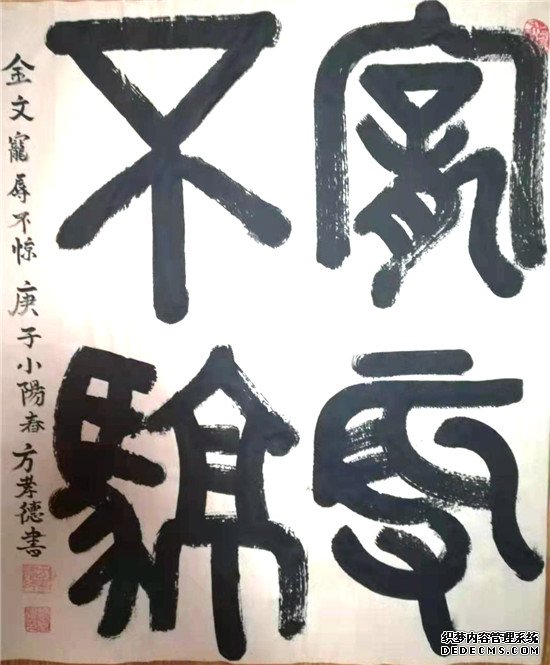 寵辱
不驚
金文寵辱不惊庚子小陽春方孝德書
织梦内容管理系统
DEDECMS.COM